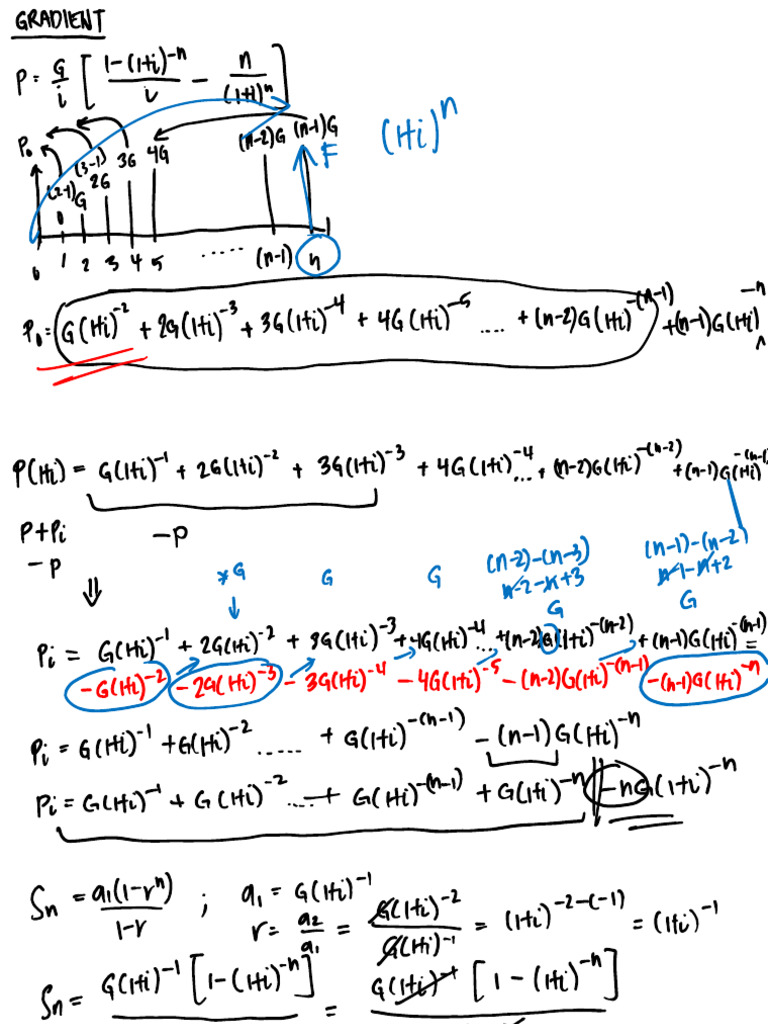 GRADIENT
P = G/i [ (1-(1+i)^-n)/i - n/(1+i)^n ]
P₀ (2-1)G (3-1) 2G 3G 4G (n-2)G (n-1)G F (1+i)^n
0 1 2 3 4 5 ..... (n-1) n
P₀ = G(1+i)^-2 + 2G(1+i)^-3 + 3G(1+i)^-4 + 4G(1+i)^-5 .... + (n-2)G(1+i)^-(n-1) + (n-1)G(1+i)^-n
P(1+i) = G(1+i)^-1 + 2G(1+i)^-2 + 3G(1+i)^-3 + 4G(1+i)^-4 ... + (n-2)G(1+i)^-(n-2) + (n-1)G(1+i)^-(n-1)
P+Pi -P
-P
⇓
(n-2)-(n-3) (n-1)-(n-2)
*G G G n-2-n+3 n-1-n+2
G G
Pi = G(1+i)^-1 + 2G(1+i)^-2 + 3G(1+i)^-3 + 4G(1+i)^-4 ... +(n-2)G(1+i)^-(n-2) + (n-1)G(1+i)^-(n-1) =
-G(1+i)^-2 - 2G(1+i)^-3 - 3G(1+i)^-4 - 4G(1+i)^-5 - (n-2)G(1+i)^-(n-1) -(n-1)G(1+i)^-n
Pi = G(1+i)^-1 + G(1+i)^-2 ..... + G(1+i)^-(n-1) - (n-1)G(1+i)^-n
Pi = G(1+i)^-1 + G(1+i)^-2 .... + G(1+i)^-(n-1) + G(1+i)^-n || -nG(1+i)^-n
Sn = a₁(1-r^n)/(1-r) ; a₁ = G(1+i)^-1
r = a₂/a₁ = G(1+i)^-2/G(1+i)^-1 = (1+i)^-2-(-1) = (1+i)^-1
Sn = G(1+i)^-1 [1-(1+i)^-n] = G(1+i)^-1 [1-(1+i)^-n]